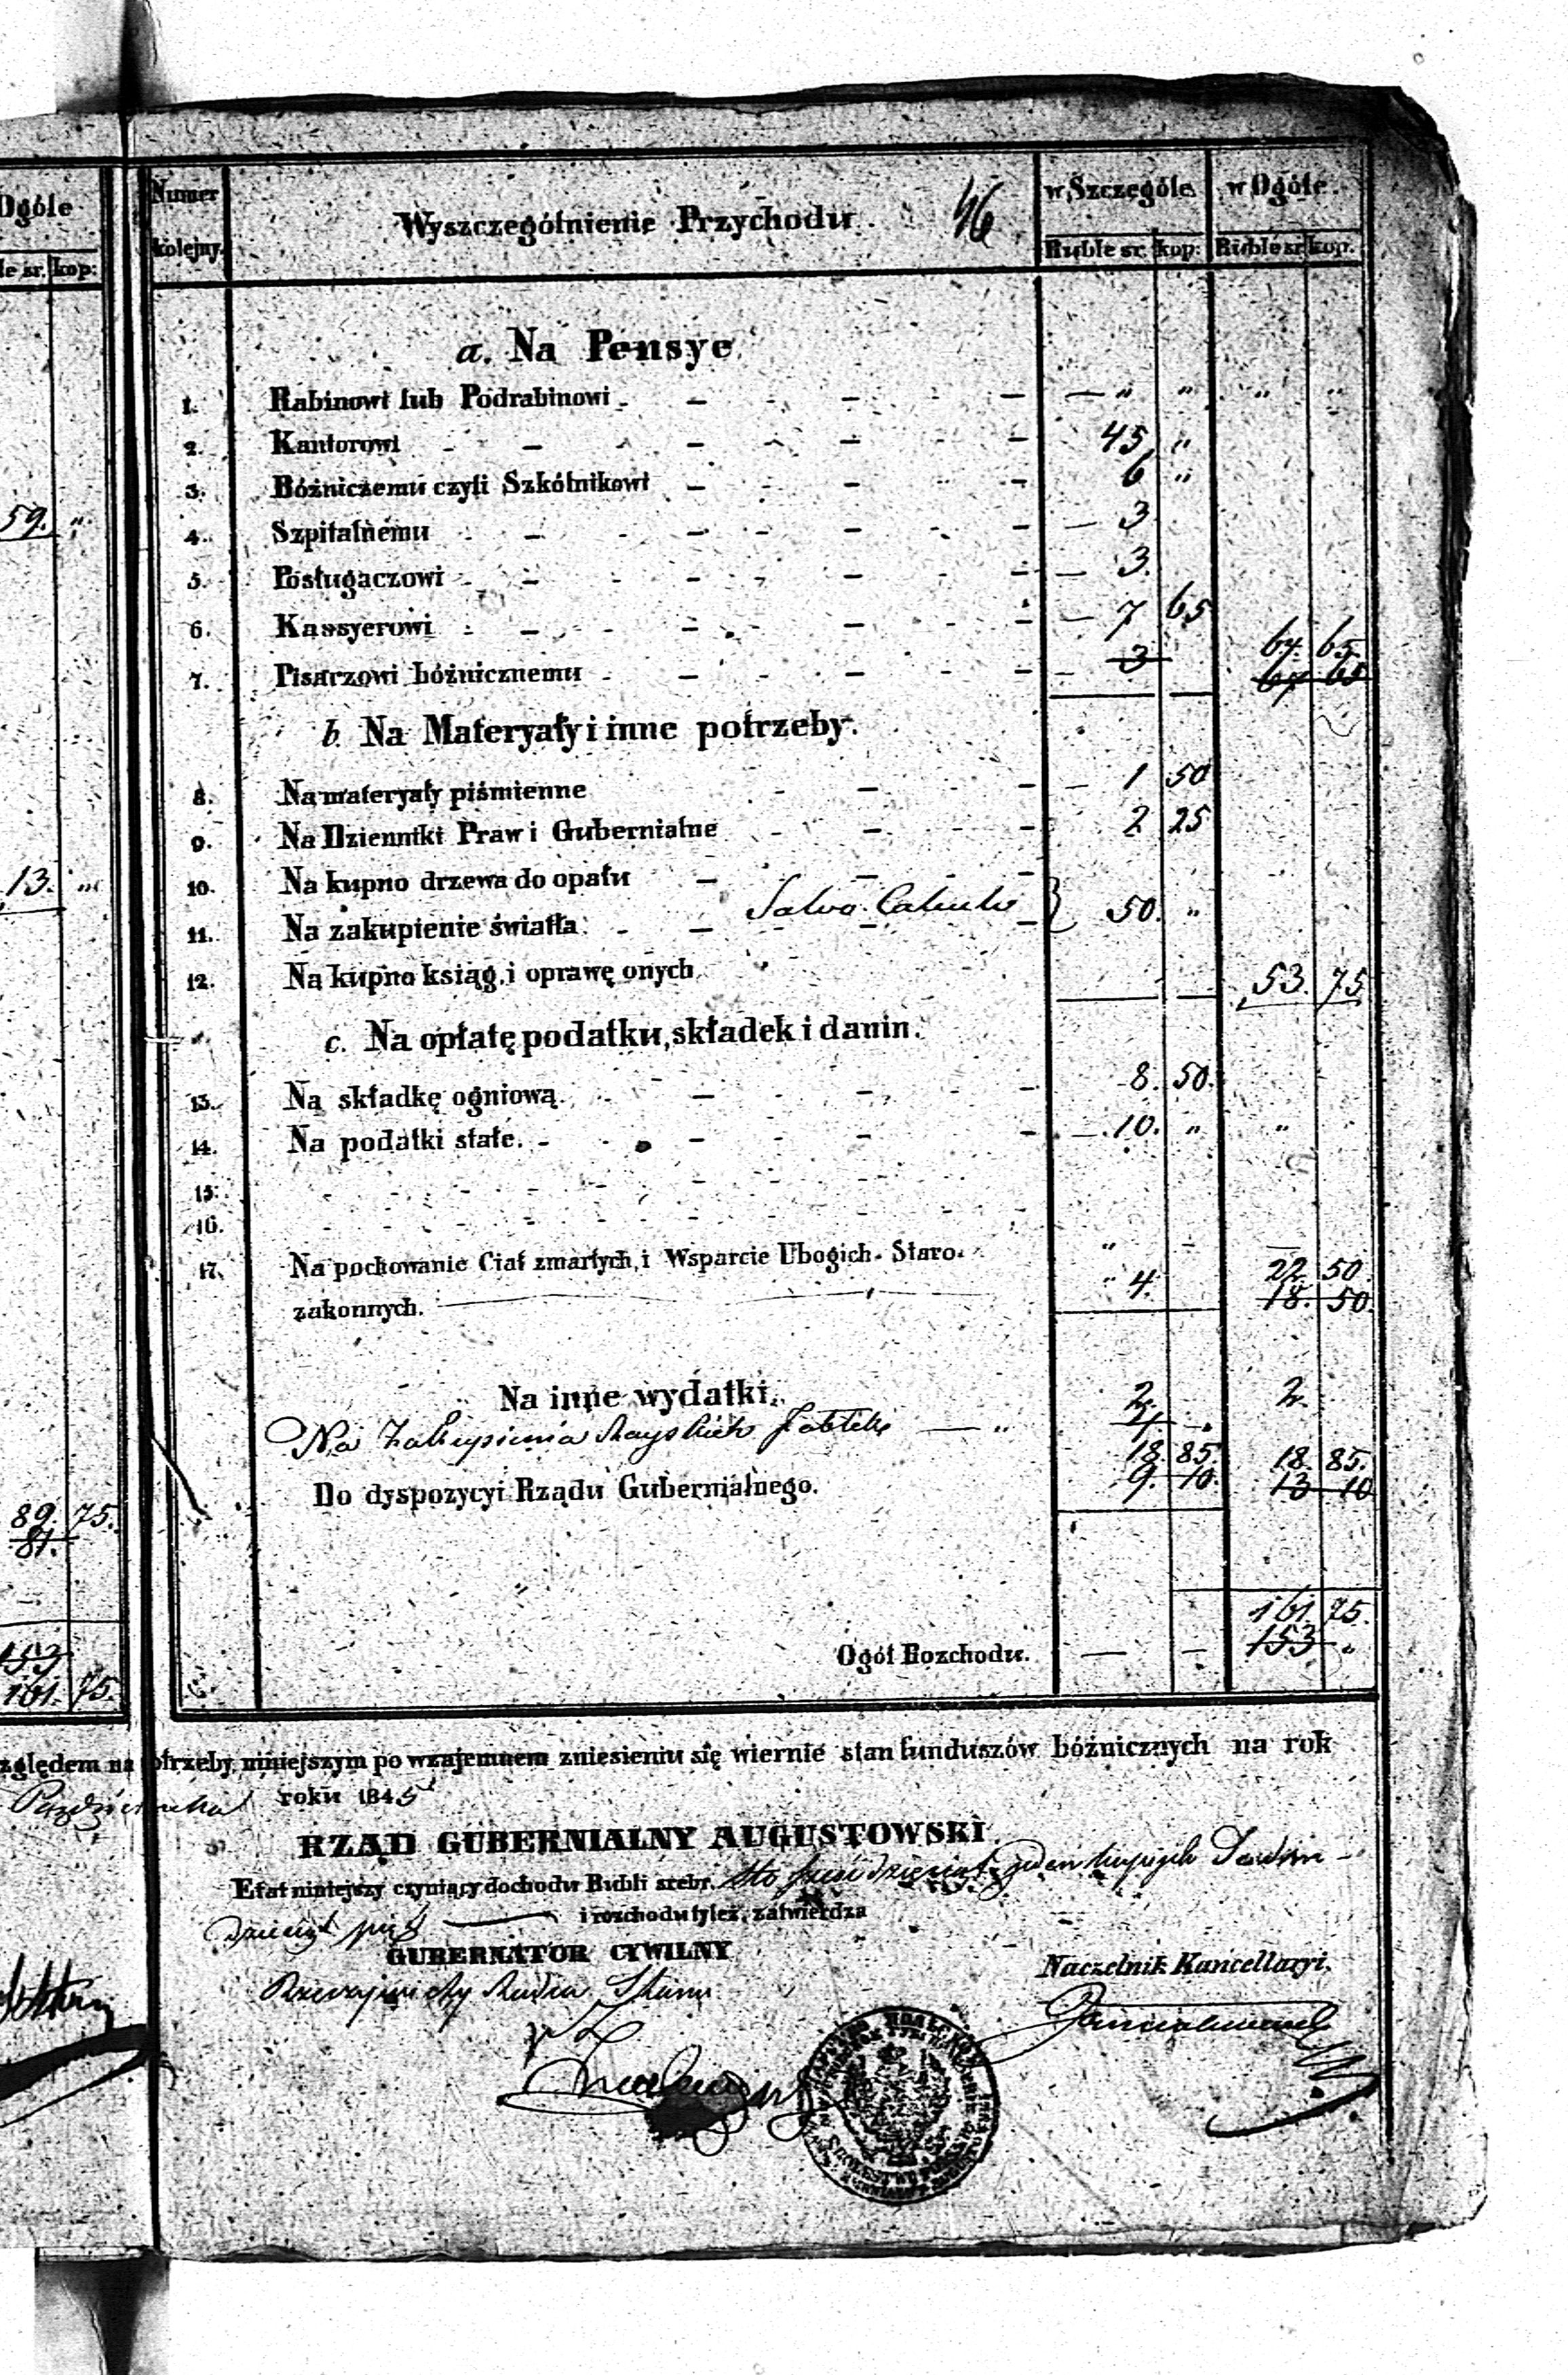 Ogóle
le sr. kop:
59. "
13. "
89. 75.
81.
153
161. 75.
Numer
kolejny.
Wyszczególnienie Przychodu
46
w Szczególe
w Ogóle.
Ruble sr. kop:
Ruble sr kop.
a. Na Pensye
1. Rabinowi lub Podrabinowi - - - - — " " " "
2. Kantorowi - - - - - 45 "
3. Bóżniczemu czyli Szkólnikowi - - - - 6 "
4. Szpitalnemu - - - - - — 3.
5. Posługaczowi - - - - - — 3.
6. Kassyerowi - - - - - — 7 65
67. 65.
7. Pisarzowi bóżnicznemu - - - - - 3 67 65
b. Na Materyały i inne potrzeby.
8. Na materyały piśmienne - - - — 1 50
9. Na Dzienniki Praw i Gubernialne - - - - 2 25
10. Na kupno drzewa do opału - - - -
Salvo Calculo } 50. "
11. Na zakupienie światła. - - - -
12. Na kupno ksiąg, i oprawę onych. 53. 75
c. Na opłatę podatku, składek i danin.
13. Na składkę ogniową. - - - - 8. 50.
14. Na podatki stałe. - - - - — 10. " "
15.
16.
17. Na pochowanie Ciał zmarłych, i Wsparcie Ubogich Staro-
zakonnych. " 4. 22 50
18. 50.
Na inne wydatki.
2. 2.
Na Zakupienia Rayskich Jabłek — " 4. "
18. 85. 18. 85.
Do dyspozycyi Rządu Gubernialnego. 9. 10. 13 10
161. 75.
Ogół Rozchodu. — — 153 "
zględem na potrzeby niniejszym po wzajemnem zniesieniu się wiernie stan funduszów bóżnicznych na rok
Października roku 1845
RZĄD GUBERNIALNY AUGUSTOWSKI
Etat niniejszy czyniący dochodu Rubli srebr. sto sześćdziesiąt jeden kopiejek Siedm-
dziesiąt pięć — i rozchodu tyleż, zatwierdza
GUBERNATOR CYWILNY
Rzeczywisty Radca Stanu
Naczelnik Kancellaryi.